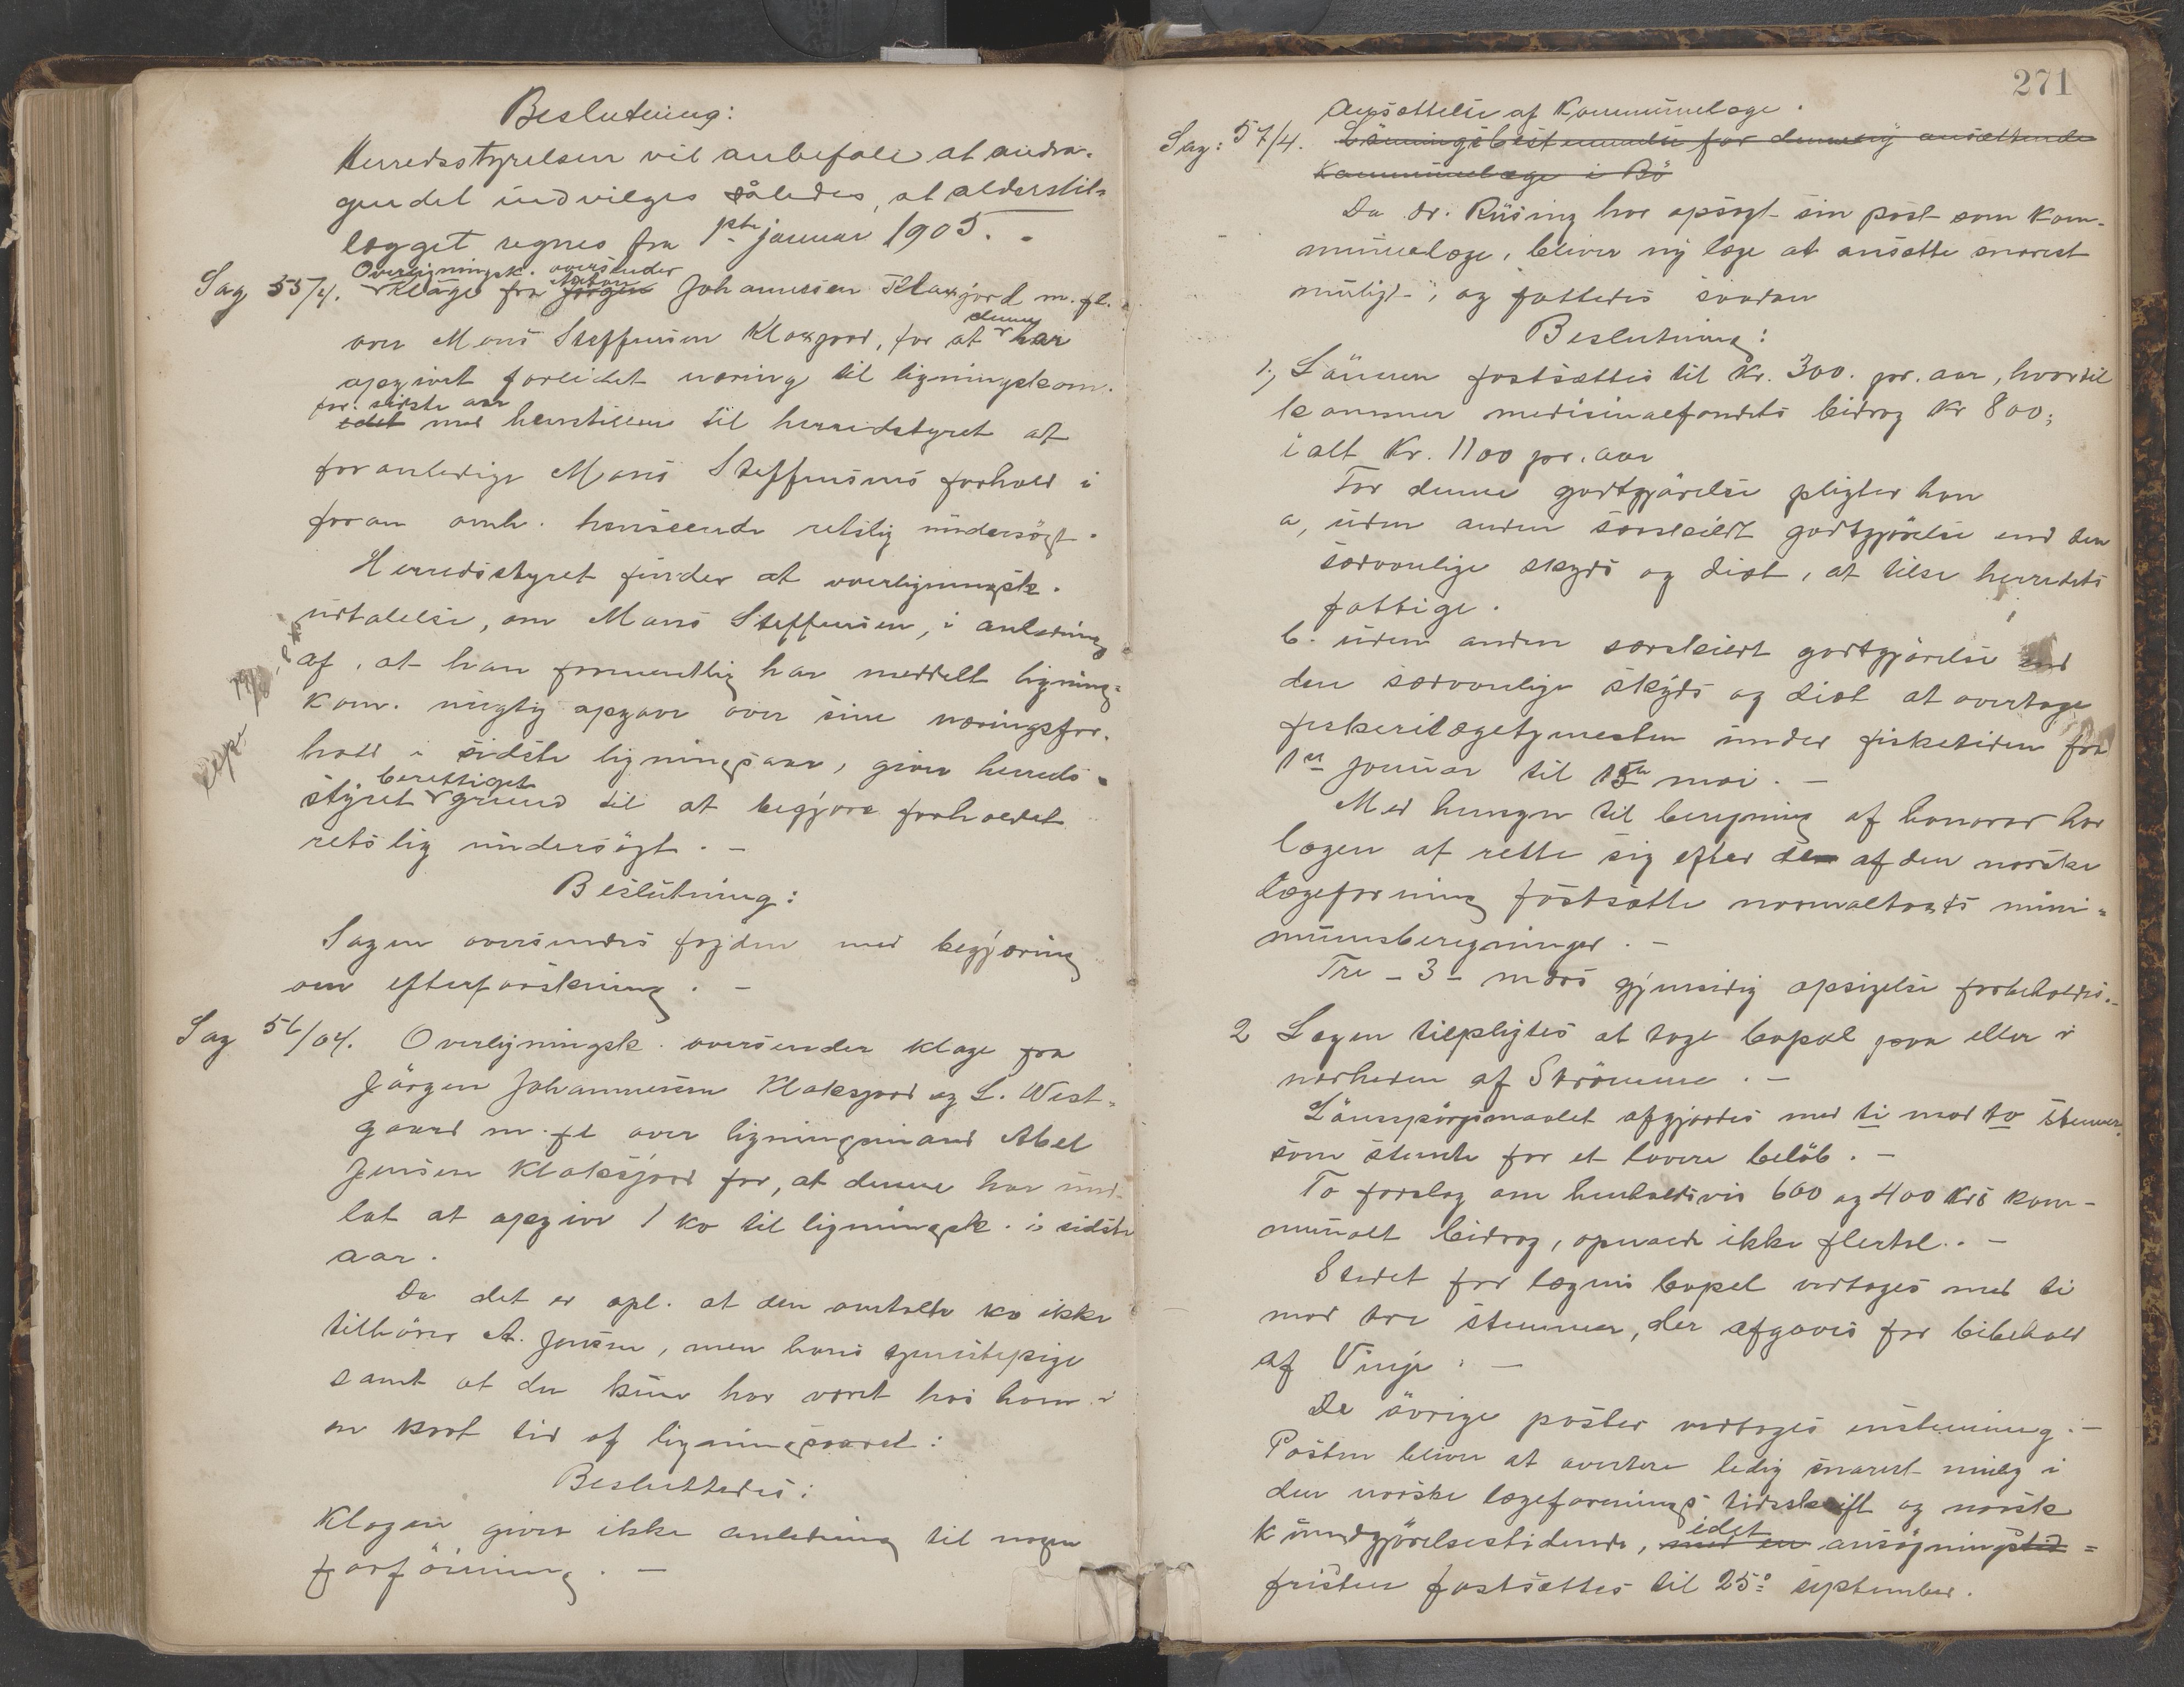 Beslutning:
Herredsstyrelsen vil anbefale at andra-
gendet indvilges således, at alderstil-
lægget regnes fra 1ste januar 1905.
Overligningsk. oversender
Sag 55/4. Klage fra Jørgen Johannessen Klaxjord m. fl.
denne
over Mons Steffensen Klaxjord, for at har
opgivet forlidet næring til ligningskom.
for sidste aar
idet med henstillen til herredstyret at
foranledige Mons Steffensens forhold i
foran omh. henseende retslig undersøgt.
Herredsstyret finder at overligningsk.
udtalelse, om Mons Steffensen, i anledning
af, at han formentlig har meddelt ligning-
kom. urigtig opgave over sine næringsfor-
hold i sidste ligningsaar, giver herreds-
berettiget
styret grund til at begjøre forholdet
retslig undersøgt. -
Beslutning:
Sagen oversendes fogden med begjæring
om efterforskning. -
Sag 56/04. Overligningsk. oversender klage fra
Jörgen Johannessen Klaksjord og L. West-
gaard m. fl over ligningsmand Abel
Jensen Klaksjord for, at denne har und-
lat at opgive 1 ko til ligningsk. i sidste
aar.
Da det er opl. at den omtalte ko ikke
tilhörer A. Jensen, men hans tjenestepige
samt at den kun har været hos ham i
en kort tid af ligningsaaret:
Besluttedes:
Klagen giver ikke anledning til nogen
forföining. -
271
Ansættelse af Kommunelæge.
Sag: 57/4. Lønningsbestemmelse for den ny ansættende
Kommunelæge i Bö
Da dr. Rüsing har opsagt sin post som kom-
munelæge, bliver ny læge at ansætte snarest
muligt, og fattedes saadan
Beslutning:
1, Lönnen fastsættes til Kr. 300. pr. aar, hvortil
kommer medisinalfondets bidrag Kr 800;
ialt Kr. 1100 pr. aar
For denne godtgjörelse pligter han
a, uden anden særskildt godtgjörelse end den
sædvanlige skyds og diæt, at tilse herredets
fattige.
b. uden anden særskildt godtgjörelse end
den sædvanlige skyds og diæt at overtage
fiskerilægetjenesten under fisketiden fra
1ste januar til 15de mai. -
Med hensyn til beregning af honorar har
lægen at rette sig efter den af den norske
lægeforening fastsatte normaltaxts mini-
mumsberegninger. -
Tre - 3 - mdrs gjensidig opsigelse forbeholdes. -
2 Lægen tilpligtes at tage bopæl paa eller i
nærheden af Strömme. -
Lönspörgsmaalet afgjordes med ti mod to stemmer,
som stemte for et lavere belöb. -
To forslag om henholdsvis 600 og 400 Krs kom-
munalt bidrag, opnaede ikke flertal. -
Stedet for lægens bopæl vedtoges med ti
mod tre stemmer, der afgaves for bibehold
af Vinje. -
De övrige poster vedtoges enstemmig. -
Posten bliver at avertere ledig snarest mulig i
den norske lægeforenings tidsskrift og norsk
idet
kundgjörelsestidende, med en ansögningstid=
fristen fastsættes til 25de september.